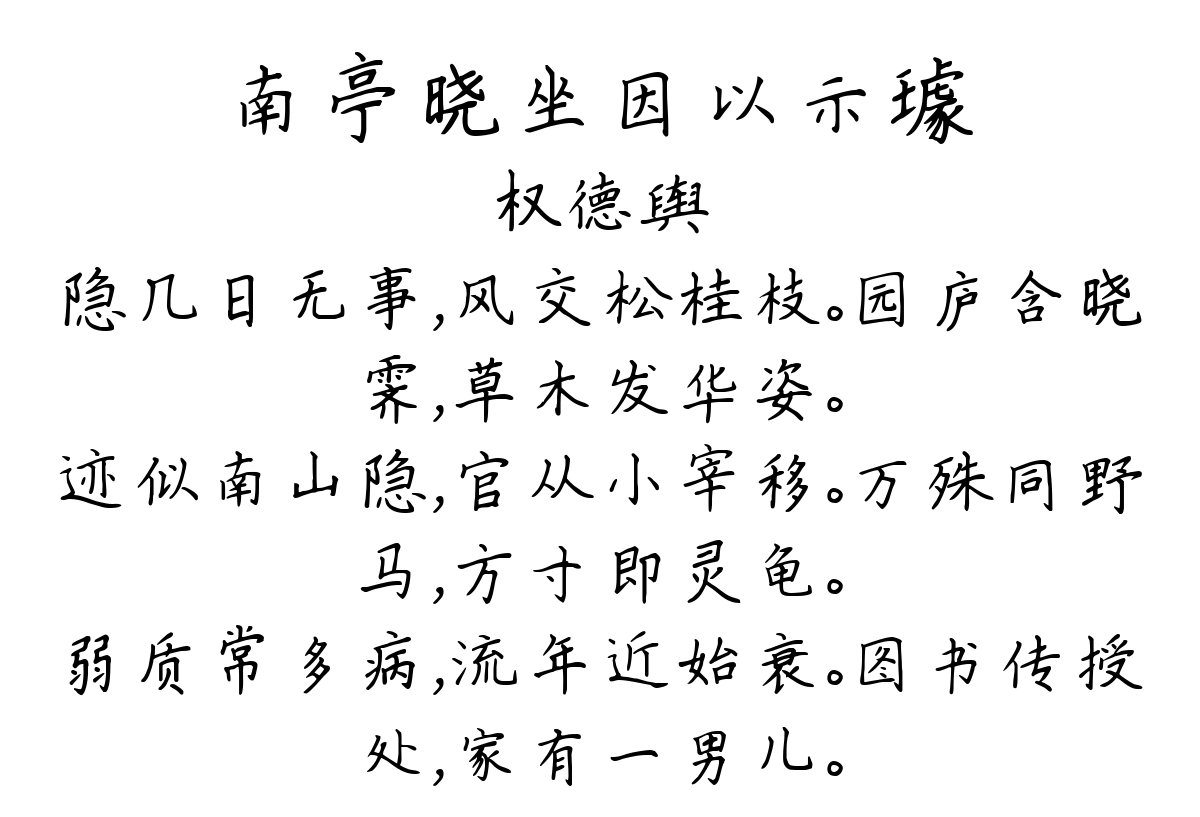 南亭晓坐因以示璩
权德舆
隐几日无事,风交松桂枝。园庐含晓
霁,草木发华姿。
迹似南山隐,官从小宰移。万殊同野
马,方寸即灵龟。
弱质常多病,流年近始衰。图书传授
处,家有一男儿。